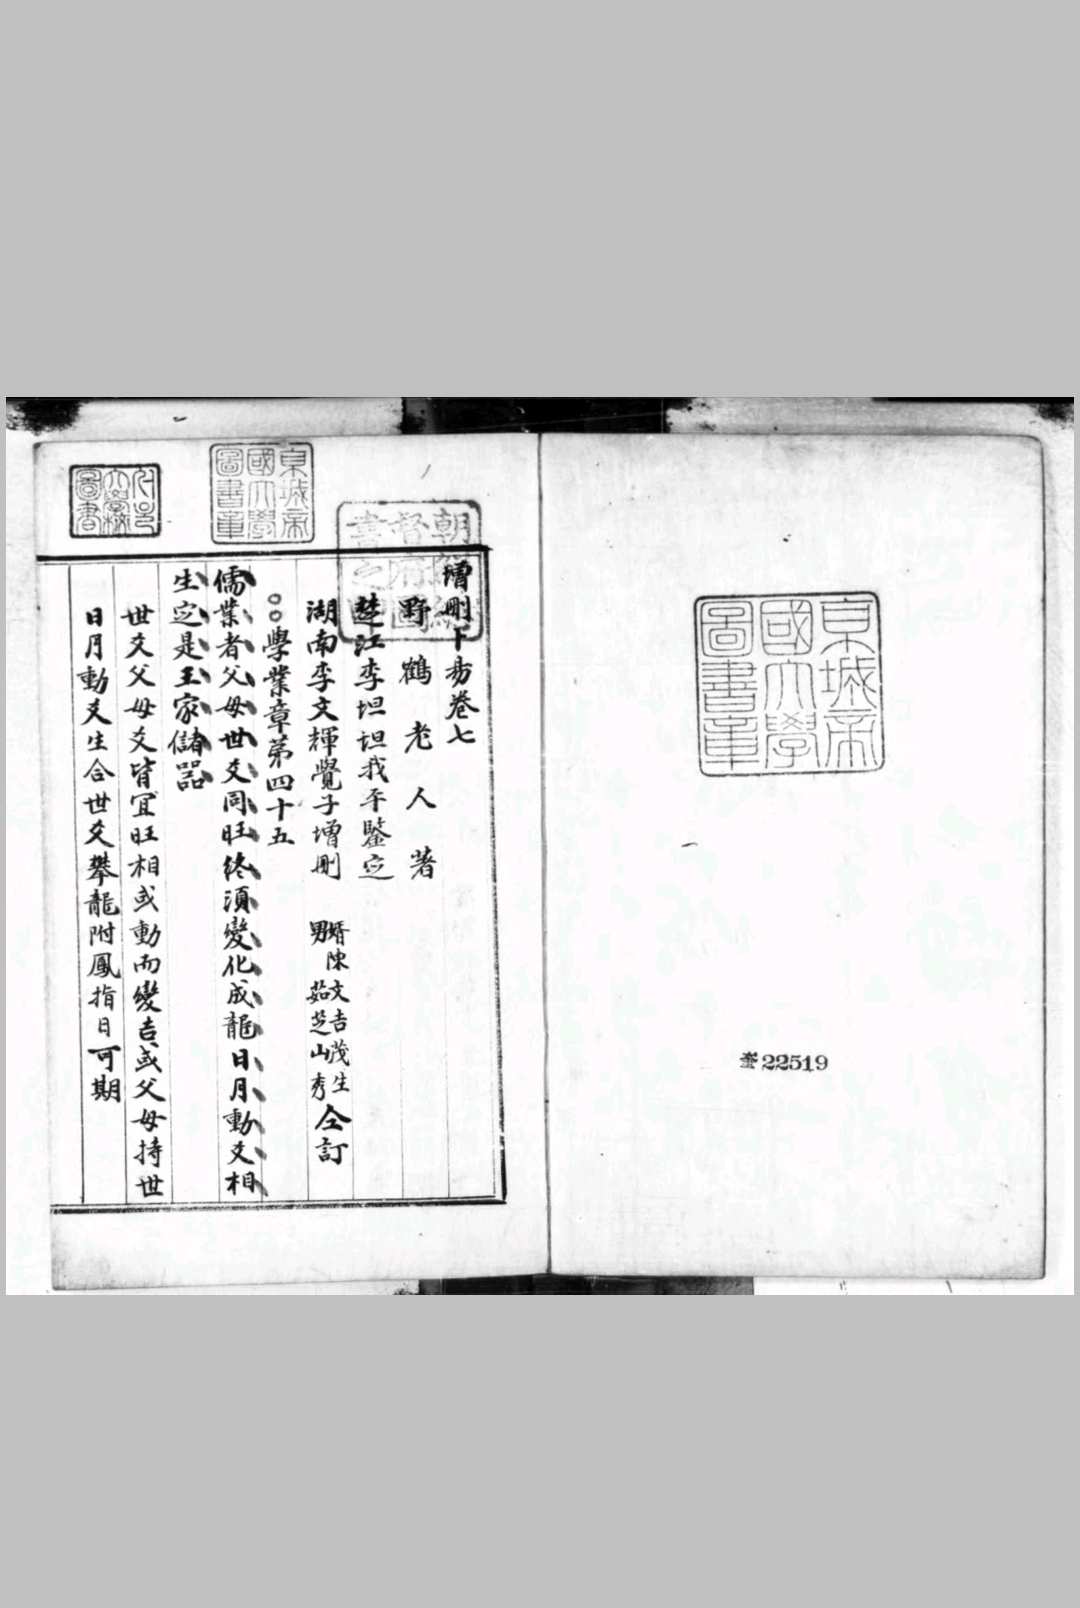 京城帝
國大學
圖書章
22519
增刪卜易卷七
野鶴老人著
楚江李坦坦我平鑒定
湖南李文輝覺子增刪 婿陳文吉茂生 男茹芝山秀 仝訂
○○學業章第四十五
儒業者父母世爻同旺終須變化成龍日月動爻相
生定是王家儲器
世爻父母爻皆宜旺相或動而變吉或父母持世
日月動爻生合世爻攀龍附鳳指日可期
朝鮮總
督府圖
書之印
京城帝
國大學
圖書章
大學校
圖書